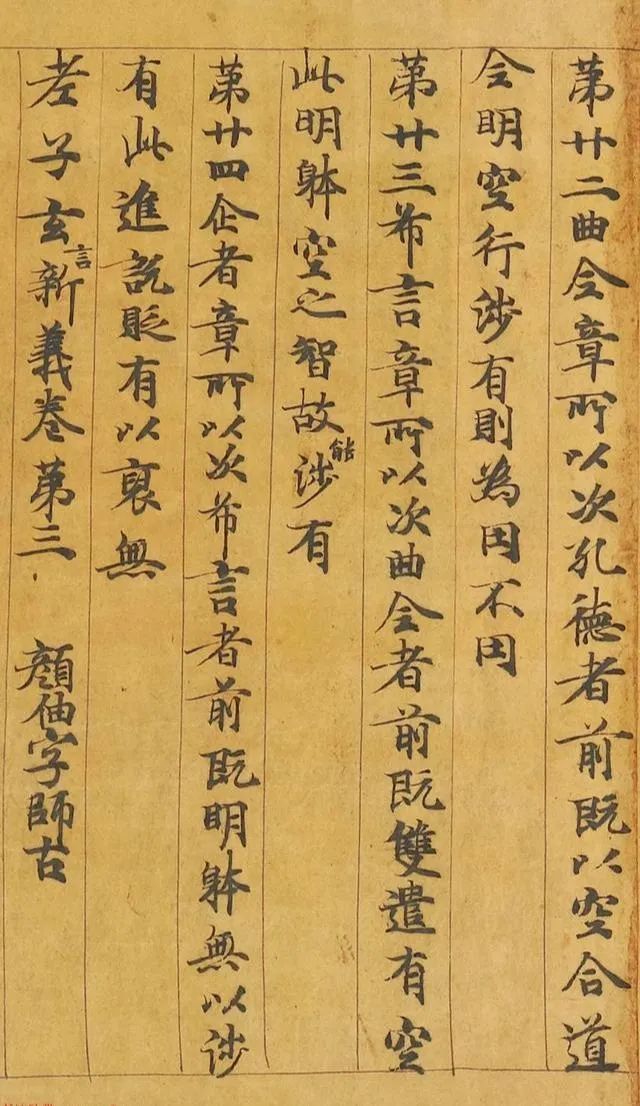 第廿二曲全章所以次孔德者前既以空合道
今明空行涉有則為因不因
第廿三希言章所以次曲全者前既雙遣有空
此明躰空之智故能涉有
第廿四企者章所以次希言者前既明躰無以涉
有此進說貶有以裒無
老子玄言新義卷第三 顏伷字師古